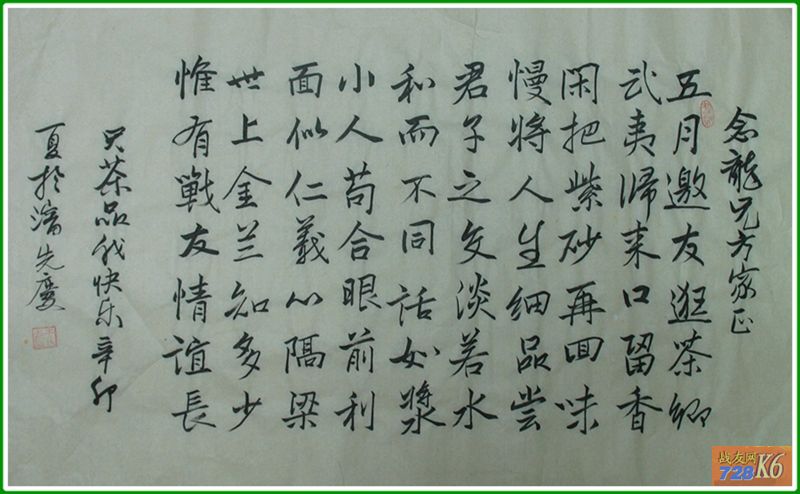 念龍兄方家正
五月邀友逛茶鄉
武夷歸来口留香
闲把紫砂再回味
慢將人生细品尝
君子之交淡若水
和而不同話如漿
小人苟合眼前利
面似仁義心隔梁
世上金兰知多少
惟有戰友情誼長
品我快乐辛卯
夏於 先慶
战友网
728K6